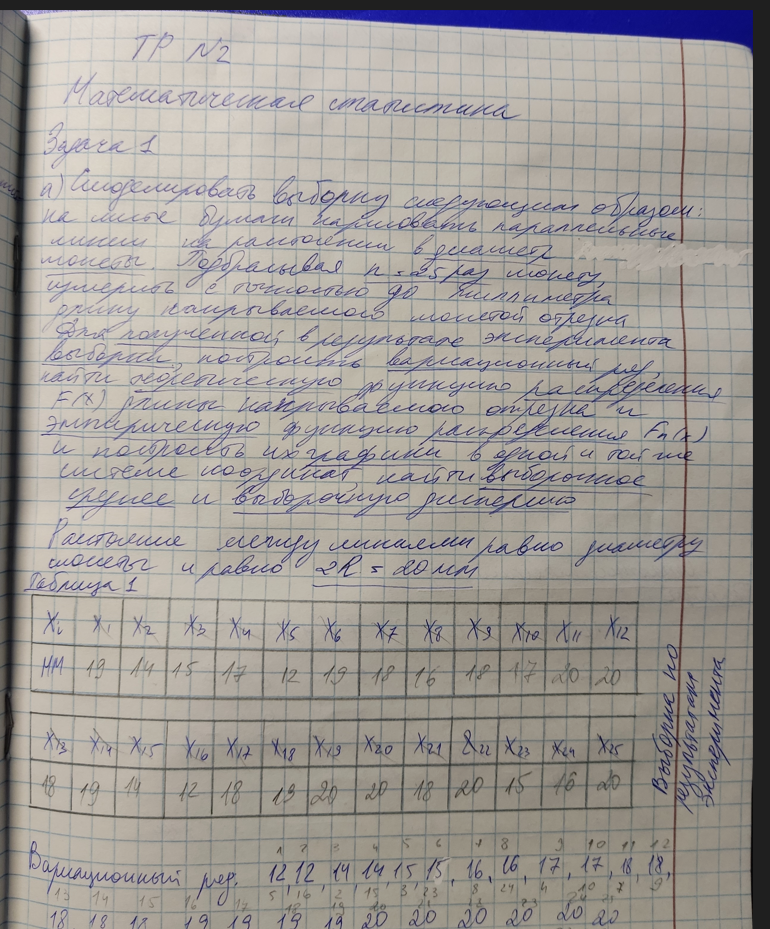 ТР N2
Математическая статистика
Задача 1
а) Смоделировать выборку следующим образом:
на листе бумаги нарисовать параллельные
линии на расстоянии в диаметр
монеты. Подбрасывая n = 25 раз монету,
измерить с точностью до миллиметра
длину накрываемого монетой отрезка
Для полученной в результате эксперимента
выборки, построить вариационный ряд,
найти теоретическую функцию распределения
F(x) длины накрываемого отрезка и
эмпирическую функцию распределения Fn(x)
и построить их графики в одной и той же
системе координат найти выборочное
среднее и выборочную дисперсию
Расстояние между линиями равно диаметру
монеты и равно 2R = 20 мм
Таблица 1
Xi X1 X2 X3 X4 X5 X6 X7 X8 X9 X10 X11 X12
мм 19 14 15 17 12 19 18 16 18 17 20 20
X13 X14 X15 X16 X17 X18 X19 X20 X21 X22 X23 X24 X25
18 19 14 12 18 19 20 20 18 20 15 16 20
Выборка по
результатам
эксперимента
1 2 3 4 5 6 7 8 9 10 11 12
Вариационный ряд. 12, 12, 14, 14, 15, 15, 16, 16, 17, 17, 18, 18,
13 14 15 16 17
5 16 2 15 3 23 8 24 4 10 7 9
18 18 18 19 19 19 19 20 20 20 20 20 20